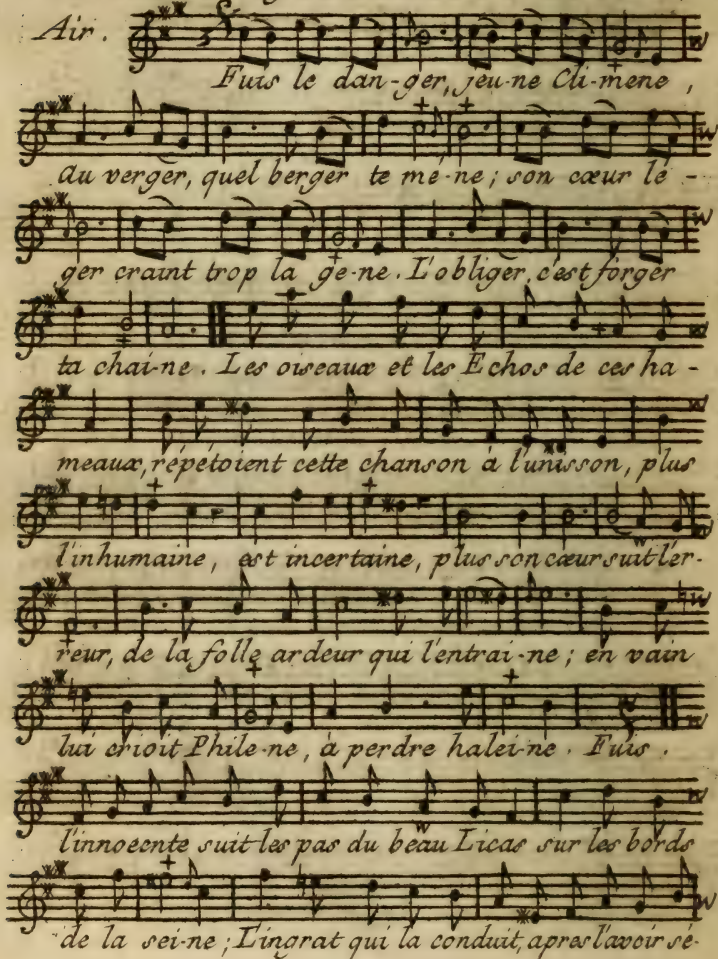 Air.
Fuis le dan-ger, jeu-ne Cli-mene,
au verger, quel berger te mé-ne; son cœur lé-
ger craint trop la ge-ne. L'obliger, c'est forger
ta chai-ne. Les oiseaux et les Echos de ces ha-
meaux, répétoient cette chanson à l'unisson, plus
l'inhumaine, est incertaine, plus son cœur suit l'er-
reur, de la folle ardeur qui l'entrai-ne; en vain
lui crioit Phile-ne, à perdre halei-ne. Fuis.
l'innocente suit les pas du beau Licas sur les bords
de la sei-ne; L'ingrat qui la conduit, apres l'avoir sé-